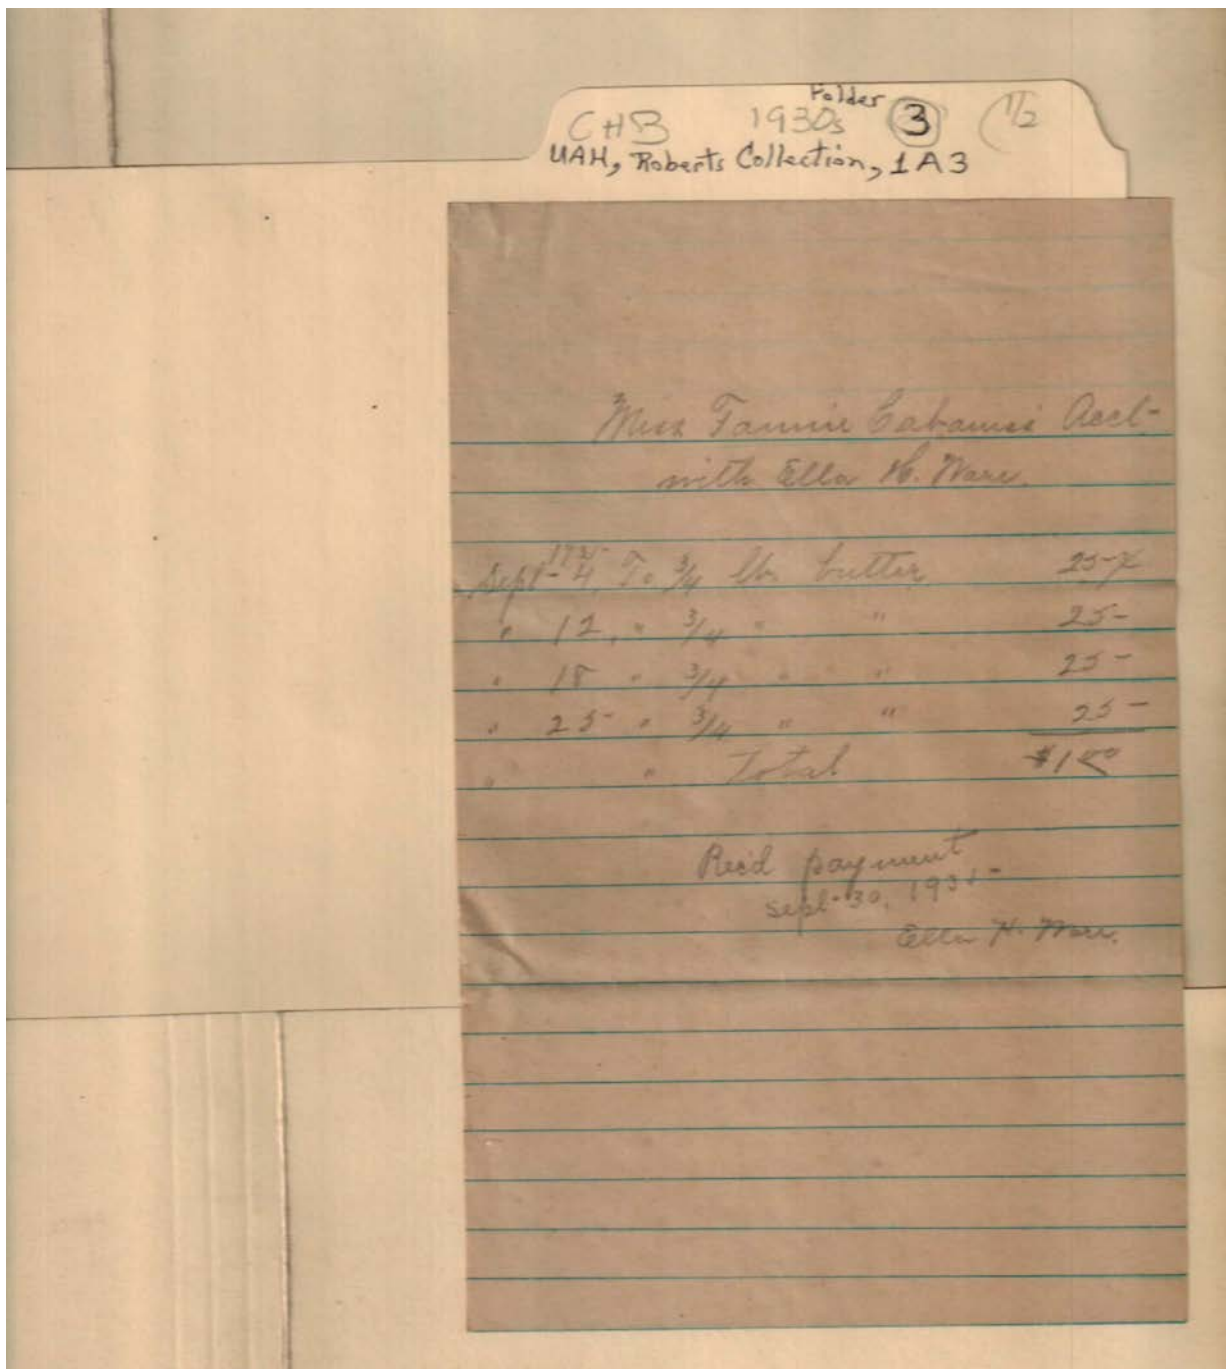 Folder
CHB 1930s 3 (1/2
UAH, Roberts Collection, 1A3
Miss Fannie Cabaniss Acct-
with Ella H. Ware.
Sept- 4, To 3/4 lb. butter 25-¢
" 12, " 3/4 " " 25-
" 18 " 3/4 " " 25-
" 25- " 3/4 " " 25-
" " Total $1 00
Rec'd payment
Sept-30,
Ella H. Ware.